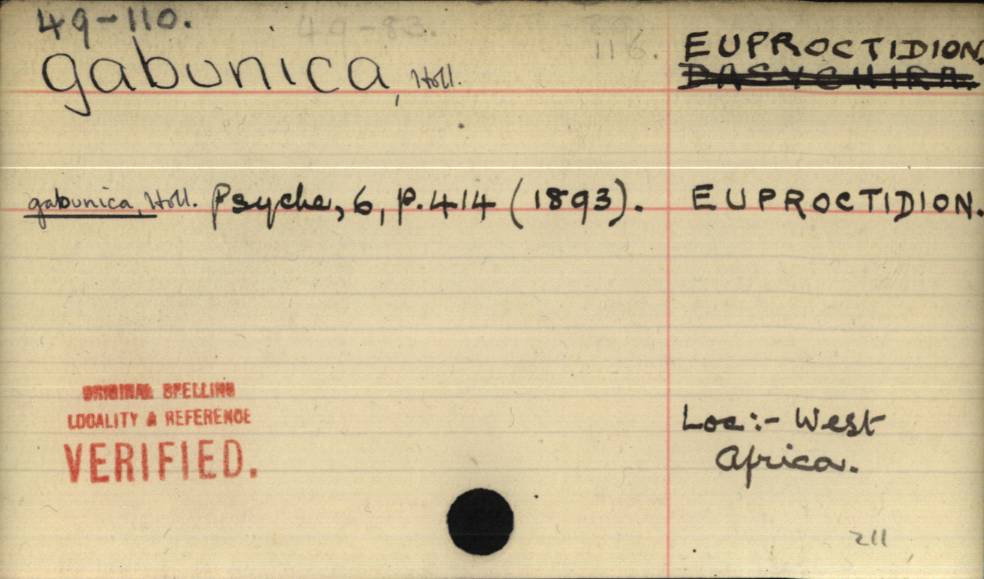 49-110. 49-83. 116. EUPROCTIDION.
gabunica, Holl. DASYCHIRA.
gabunica, Holl. Psyche, 6, p.414 (1893). EUPROCTIDION.
ORIGINAL SPELLING
LOCALITY & REFERENCE
VERIFIED.
Loc:- West
Africa.
211